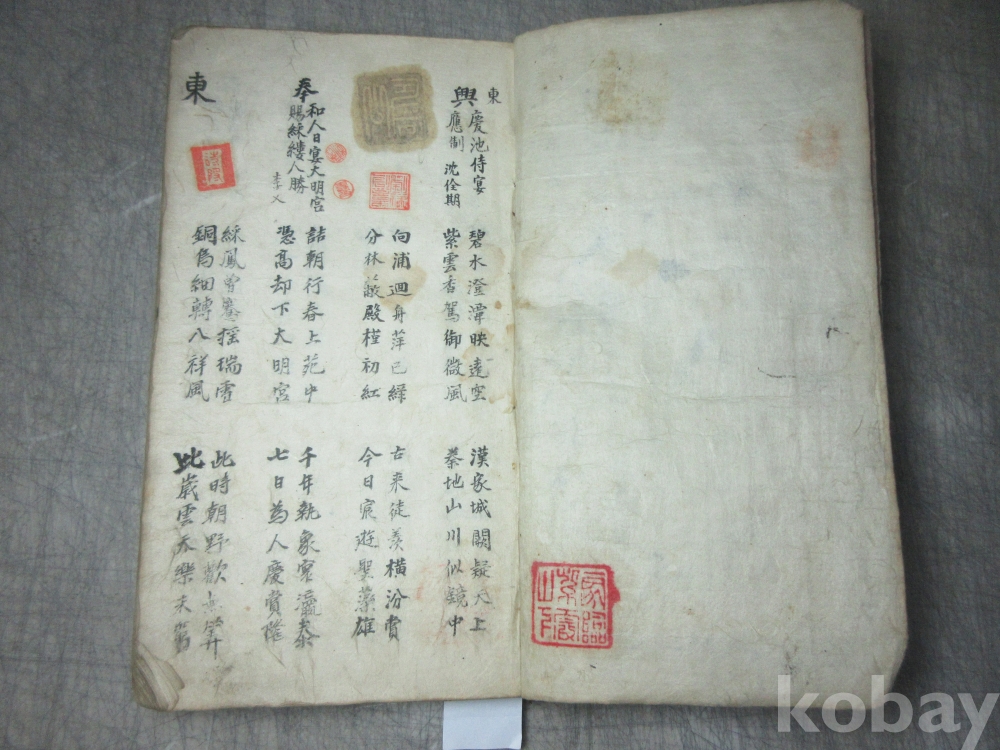 東
興慶池侍宴
應制 沈佺期
碧水澄潭映遠空
紫雲香駕御微風
漢家城闕疑天上
秦地山川似鏡中
向浦迴舟萍已綠
分林蔽殿槿初紅
古来徒羨橫汾賞
今日宸遊聖藻雄
奉和人日宴大明宮
賜綵縷人勝 李乂
詰朝行春上苑中
憑高却下大明宮
千年執象寰瀛泰
七日為人慶賞隆
東
綵鳳曾騫摇瑞雪
銅烏細轉入祥風
此時朝野歡無筭
此歲雲天樂未窮
kobay